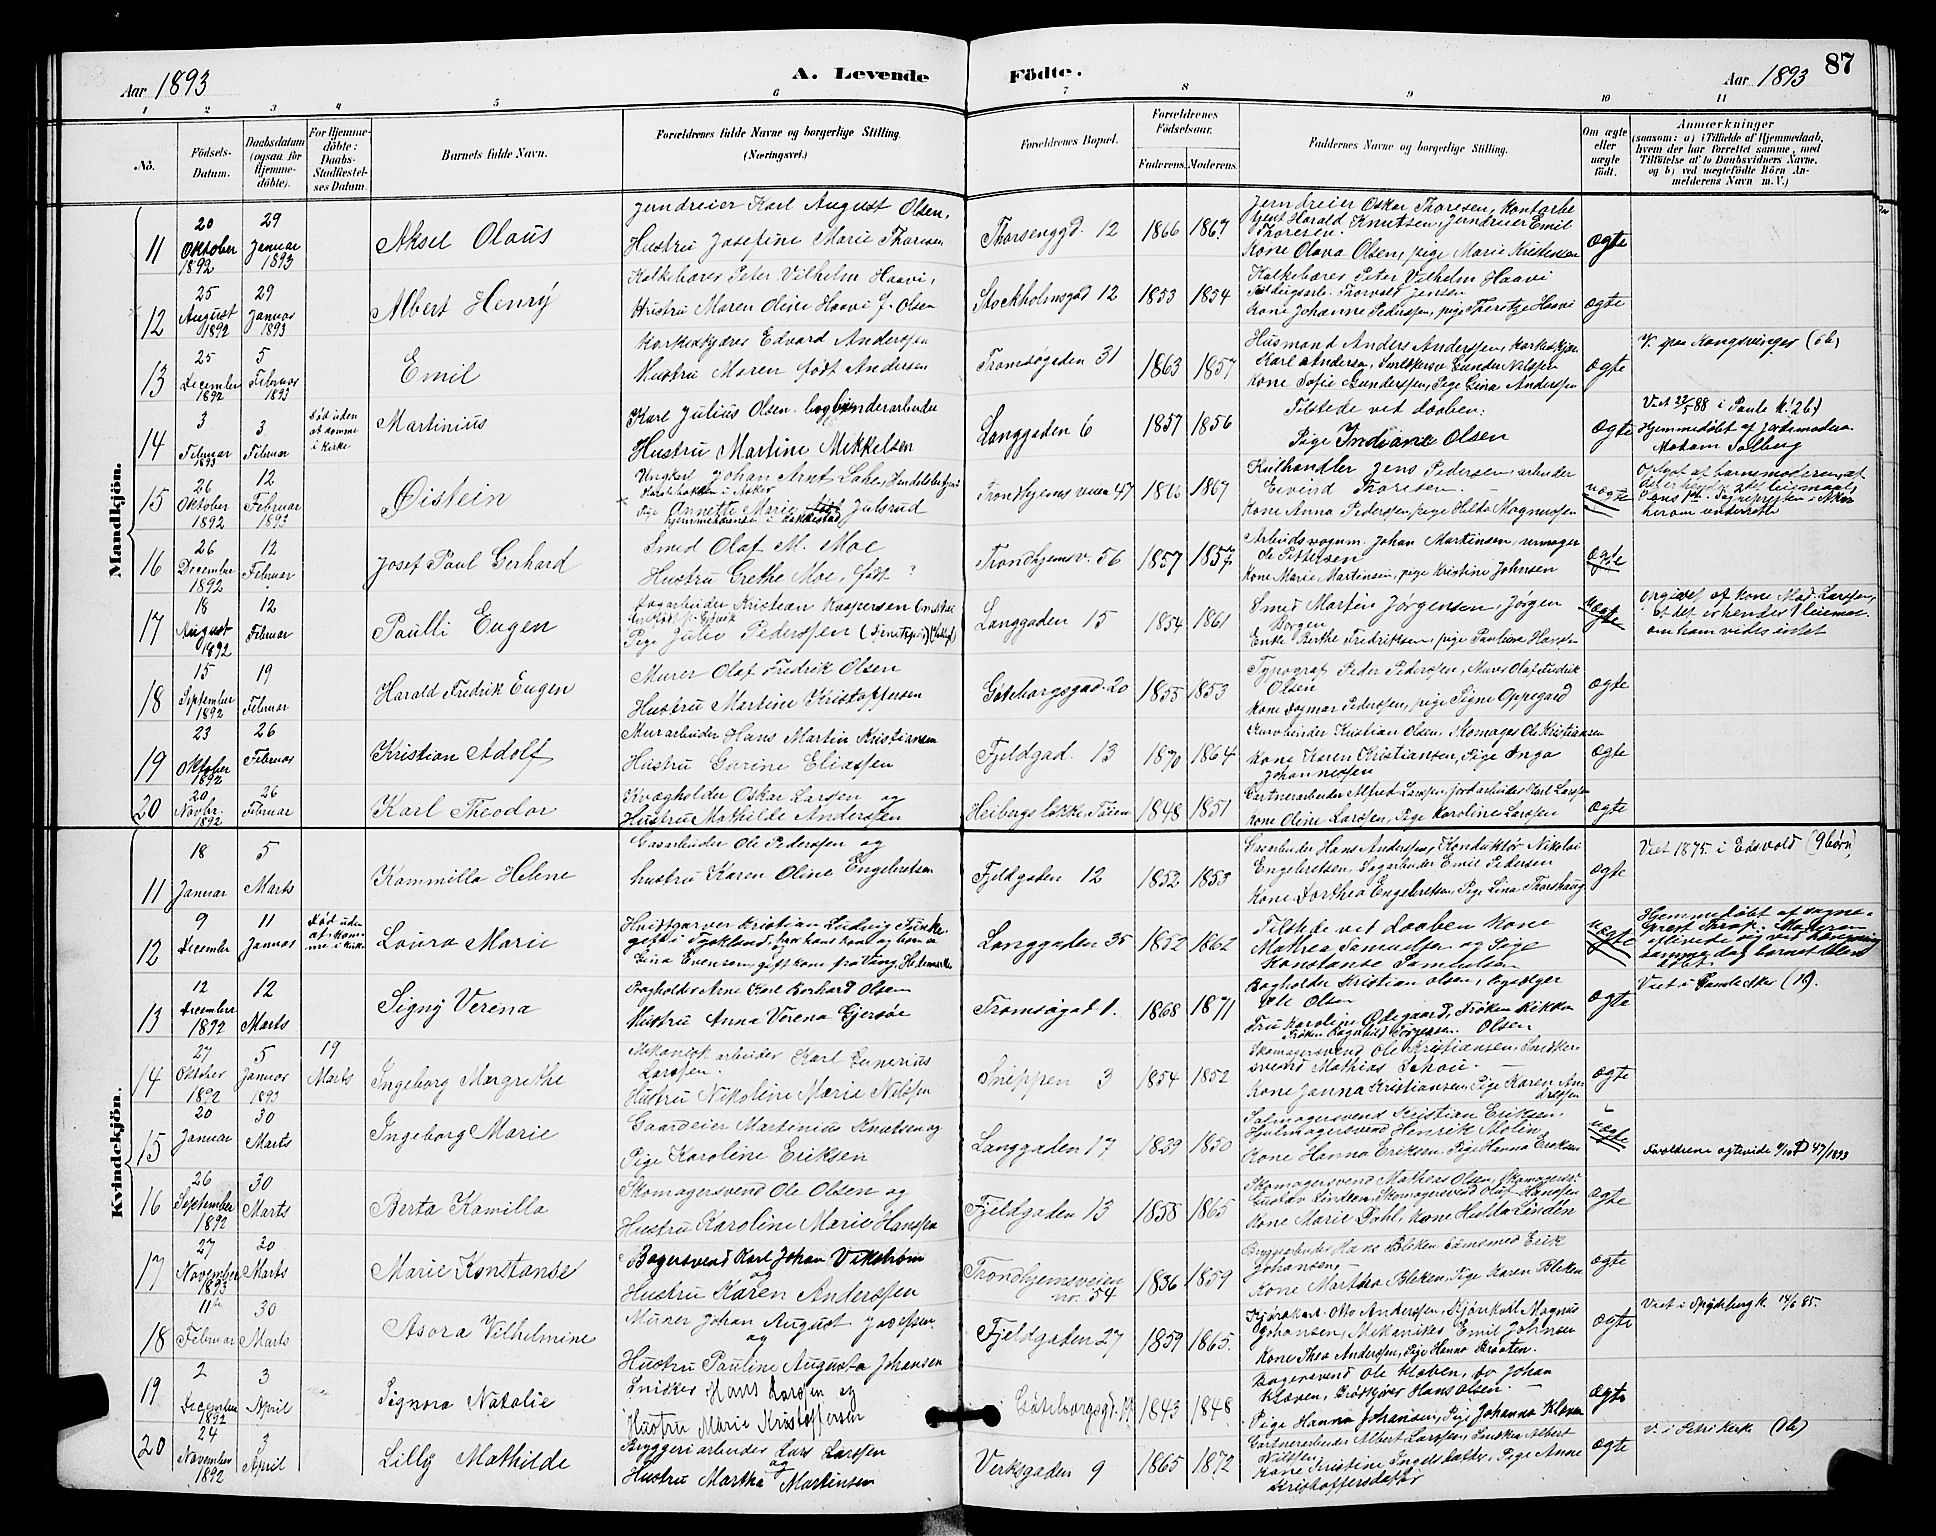 Aar 1893
A. Levende
Födte.
Aar 1893
87
1 2 3 4 5 6 7 8 9 10 11
No.
Födsels-Datum.
Daabsdatum (ogsaa for Hjemmedöbte).
For Hjemmedöbte: Daabs-Stadfæstelses Datum.
Barnets fulde Navn.
Forældrenes fulde Navne og borgerlige Stilling.
(Næringsvei.)
Forældrenes Bopæl.
Forældrenes Födselsaar.
Faderens. Moderens.
Faddernes Navne og borgerlige Stilling.
Om ægte eller uægte födt.
Anmærkninger
(saasom: a) i Tilfælde af Hjemmedaab, hvem der har forrettet samme, med Tilföielse af to Daabsvidners Navne, og b) ved uægtefödte Börn Anmelderens Navn m. V.)
Mandkjön.
11 20 Oktober 1892 29 Januar 1893 Aksel Olaus
Jerndreier Karl August Olsen,
Hustru Josefine Marie Thoresen
Thorsenggd. 12 1866 1867
Jerndreier Oskar Thoresen, Kontorbetjent Harald Knutsen, Jerndreier Emil Thoresen.
Kone Olava Olsen, pige Marie Kristensen
ægte
12 25 August 1892 29 Januar 1893 Albert Henry
Kalkebærer Peter Vilhelm Haavi,
Hustru Maren Oline Haavi f. Olsen
Stockholmsgad 12 1853 1854
Kalkebærer Peter Vilhelm Haavi
Thorvald Jensen
Kone Johanne Pedersen, pige Haavi
ægte
13 25 December 1892 5 Februar 1893 Emil
Korkeskjærer Edvard Andersen
Hustru Maren født Andersen
Tromsøgaden 31 1863 1857
Husmand Anders Anderssen, Korkeskjær.
Karl Anderssen, Gunder Nilssen
Kone Sofie Gunderssen, Pige Gina Anderssen
ægte
V. paa Kongsvinger (6b)
14 3 Februar 1893 3 Februar Død uden at komme i Kirke Martinius
Karl Julius Olsen. bogbinderarbeider
Hustru Martine Mikkelsen
Langgaden 6 1857 1856
Tilstede ved daaben:
Pige Indiane Olsen
ægte
Viet 22/5 88 i Pauls K. (2b.)
Hjemmedøbt af Jordemoderen Madam Solberg
15 26 Oktober 1892 12 Februar 1893 Øistein
Ungkarl Johan Arnt
Pige Annette Marie Julsrud
Trondhjemsveien 47 1867
Kulhandler Jens Pedersen, arbeider
Eivind Thoresen.
Kone Anna Pedersen, pige Hilda Magnussen
uægte
16 26 December 1892 12 Februar Josef Paul Gerhard
Smed Olaf M. Moe
Hustru Grethe Moe, født ?
Trondhjemsv. 56 1857 1857
Arbeidsvognm. Johan Martinsen, urmager
Pettersen
Kone Marie Martinsen, pige Kristine Johnsen
ægte
17 18 August 1892 12 Februar Paulli Eugen
Kristian Kaspersen
Pige Julie Pederssen
Langgaden 15 1854 1861
Smed Martin Jørgensen, Jørgen Borgen
Enke Berthe Fredriksen, pige Pauline Hansen
uægte
Opgivet af kone Mad. Larssen, at det er hendes 1 leiermaal
om ham vides intet
18 15 September 1892 19 Februar Harald Fredrik Eugen
Murer Olaf Fredrik Olsen
Hustru Martine Kristoffersen
Göteborgsgad. 20 1855 1853
Typograf Peder Pederssen, Murer Olaf Fredrik Olsen
Kone Dagmar Pederssen, pige Signe Oppegard
ægte
19 23 Oktober 1892 26 Februar Kristian Adolf
Murarbeider Hans Martin Kristiansen
Hustru Gurine Eliassen
Fjeldgad. 13 1870 1864
Kurvbinder Kristian Olsen, Skomager Ole Kristiansen
Kone Karen Kristiansen, Pige Inga Johannessen
ægte
20 20 Novbr. 1892 26 Februar Karl Theodor
Kvægholder Oskar Larsen og
Hustru Mathilde Anderssen
Heibergs løkke Tøien 1848 1851
Gartnerarbeider Alfred Larssen, jordarbeider Karl Larssen
Kone Oline Larssen, Pige Karoline Larssen
ægte
Kvindekjön.
11 18 Januar 5 Marts Kammilla Helene
Gasarbeider Ole Pederssen og
hustru Karen Oline Engebretsen
Fjeldgaden 12 1852 1853
Gasarbeider Hans Anderssen, Konduktør Nikolai
Engebretsen, Sagarbeider Emil Pedersen
Kone Dorthea Engebretsen, Pige Lina Thorshaug
ægte
Viet 1875 i Edsvold (9 børn)
12 9 December 11 Januar Død uden at komme i Kirke Laura Marie
Kristian Ludvig
Lina Evensen, gift kone fra Vang, Hedemarken
Langgaden 35 1852 1862
Tilstede ved daaben Kone
Mathea Samuelsen og Pige
Konstanse Samuelsen
uægte
13 12 December 1892 12 Marts Signy Verena
Bogholder Arne Karl Berhard Olsen
Hustru Anna Verena Gjersøe
Tromsøgad 1. 1868 1871
Bagholder Kristian Olsen,
Ole Olsen
Fru Karoline Ødegaard, Frøken Rikka Olsen
Frøken Ragnhild Jørgensen.
ægte
Viet i Gamle Aker (1b).
14 27 Oktober 1892 5 Januar 1893 19 Marts Ingeborg Margrethe
Mekanisk arbeider Karl Gunerius Larssen.
Hustru Nikoline Marie Nilssen
Snippen 3 1854 1852
Skomagersvend Ole Kristiansen, Snidkersvend Mathias Schou.
Kone Janna Kristiansen, Pige Karen Andressen
ægte
15 20 Januar 30 Marts Ingeborg Marie
Gaardeier Martinius Knutsen og
Pige Karoline Eriksen
Langgaden 17 1839 1850
Salmagersvend Kristian Eriksen,
Hjulmagersvend Henrik Molin,
Kone Hanna Eriksen, Pige Hanna Eriksen
uægte
Forældrene ægteviede 47/1893
16 26 September 1892 30 Marts Berta Kamilla
Skomagersvend Ole Olsen og
Hustru Karoline Marie Hanssen
Fjeldgaden 13 1858 1865
Skomagersvend Mathias Olsen, Skomagersv.
Gustav Linden, Skomagersvend Olaf Hanssen
Kone Marie Dahl, Kone Hulda Linden
ægte
17 27 November 1893 30 Marts Marie Konstanse
Bagersvend Karl Johan Vikstrøm
og
Hustru Karen Anderssen
Trondhjemsveien no. 54 1836 1859
Bryggearbeider Hans Bleken, Erik
Johansen,
Kone Marthea Bleken, Pige Karen Bleken
ægte
18 11te Februar 30 Marts Asora Vilhelmine
Murer Johan August Josefsen
og
Hustru Pauline Augusta Johansen
Fjeldgaden 27 1859 1865.
Kjørekarl Otto Anderssen, Kjørekarl Magnus
Johansen, Mekaniker Emil Johnsen
Kone Thea Anderssen, Pige Hanna Braaten.
ægte
Viet i Spydeberg K. 14/6 85.
19 2 December 1892 3 April Signora Natalie
Snidker Hans Larssen og
Hustru Marie Kristoffersen
Göteborgsgd. 1843 1848
Bagersvend Ole Kløven, do Johan
Kløven, Hans Olsen.
Pige Hanna Johansen, Pige Johanna Kløven
ægte
20 24 November 1892 3 April Lilly Mathilde
Bryggeriarbeider Lars Larssen
og
Hustru Martha Martinsen
Verksgaden 9 1865 1872
Gartnerarbeider Albert Larssen, Snidker Albert
Nilssen
Kone Kristine Ingelsdatter, Pige Anne
Kristoffersdatter
ægte
V. i Petri Kirk (1b)